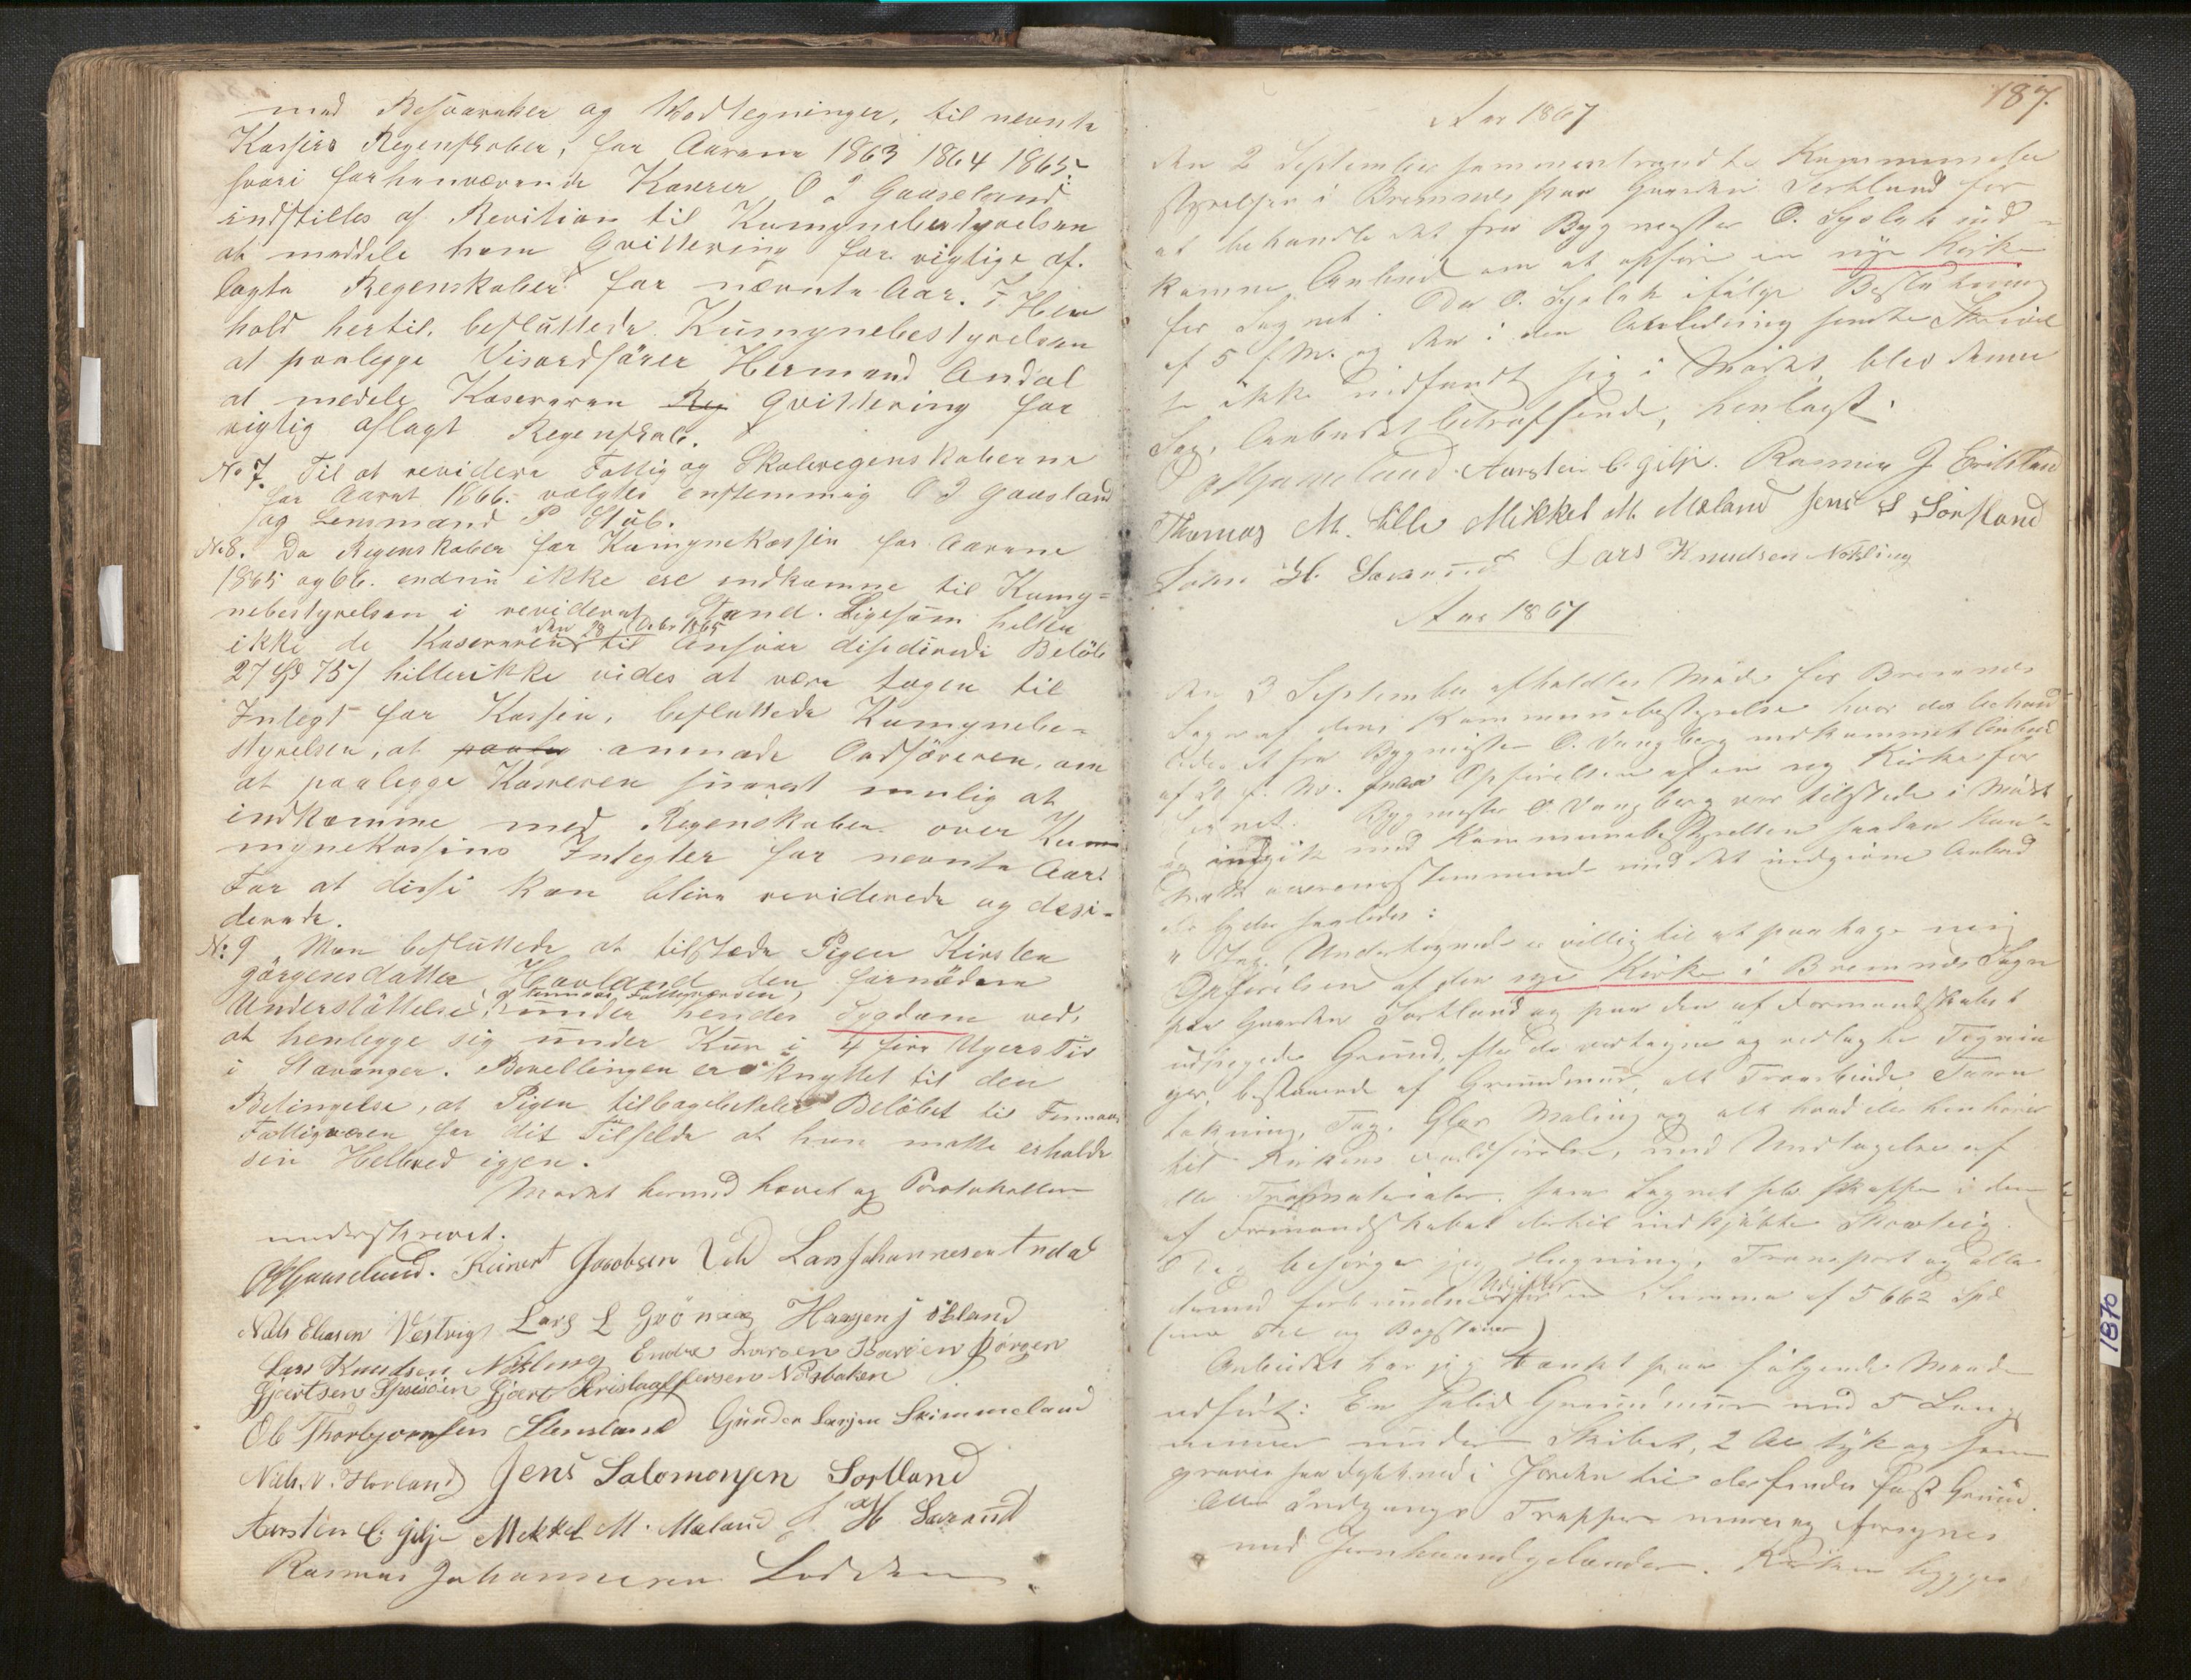 med Besvarelser og Vedtegninger, til nevnte
Kassers Regenskaber, for Aarene 1863 1864 1865.
hvori forhenværende Kaserer O J Gaaseland
indstilles af Revition til Kumynebestyrelsen
at meddele ham Qvittering for rigtige af-
lagte Regenskaber for nævnte Aar. I Hen
hold hertil, besluttede Kumynebestyrelsen
at paalegge Viseordförer Hermand Andal
at medele Kasereren Reg Qvittering for
rigtig aflagt Regenskab.
No 7. Til at revidere Fattig og Skoleregenskaberne
for Aaret 1866. valgtes enstemmig O J Gaasland
og Lensmand P Stub.
No 8. Da Regenskaber for Kumynekassen for Aarene
1865 og 66. endnu ikke ere indkomne til Kumy-
nebestyrelsen i revideret Stand. Ligesom heller
den 28 Octbr 1865
ikke de Kasereren til Ansvar disiderede Belöb
27 Spd 75 s hiller ikke vides at være tagen til
Integt for Kassen, besluttede Kumynebe-
styrelsen, at paaleg anmode Ordföreren, om
at paalegge Kasereren snarest mulig at
indkomme med Regenskaber over Kum
mynekassens Integter for nevnte Aar.
For at disse kan blive reviderede og desi-
derede.
No: 9 Man besluttede at tilstede Pigen Kirsten
Görgensdatter Hovland den fornödne
af Finnaas Fattigvæsen
Understöttelse, under hendes Sygdom ved,
at henlegge sig under Kur i 4 fire Ugers Tid
i Stavanger. Bevellingen er knyttet til den
Betingelse, at Pigen tilbagebetaler Belöbet til Finnaas
Fattigvæsen for dit Tilfelde at hun matte erholde
sin Helbred igjen.
Mödet hermed hævet og Protokollen
underskrevet.
O J Gaaseland. Reinert Jacobsen Lars Johannesen Andal
Niels Eliasen Vestvig Lars L Grönaas Haagen J Økland
Lars Knudsen Nökling Endre Larsen Børgen
Gjertsen Gjert Nordbøken
Ole Thorbjørnsen Stensland Gunder Larsen Skimmeland
Niels. N. Hovland Jens Salomonsen Sortland
Aursten C. Gilje Mekkel M. Mæland J H Særsund
Rasmus Johannesen Lodden
187.
Aar 1867
den 2 September sammentraadte Kommunebe
styrelsen i Bremnes paa Gaarden Sortland for
at behandle det fra Bygmester O. Syslak ind-
komne Anbud om at opföre en nye Kirke
for Sognet. Da O. Syslak ifölge Beslutning
af 5 f. M. og den i den Anledning sendte Skrivel
se ikke indfandt sig i Mödet, blev denne
Sag, Anbudet betræffende, henlagt.
O J Gaaseland Aursten C. Gilje. Rasmus J Eidestad
Thomas M. Lille Mikkel M. Mæland Jens S Sortland
John H. Særsund Lars Knudsen Nökling
Aar 1867
den 3 September afholdtes Möde for Bremnes
Sogn af dens Kommunebestyrelse hvor der behand
ledes et fra Bygmester O. Vangberg indkommet Anbud
af 21 f. M. paa Opförelsen af en ny Kirke for
Sognet. Bygmester O Vangberg var tilstede i Mödet
og indgik med Kommunebestyrelsen saadan Kon-
trakt overensstemmende med det indgivne Anbud
der lyder saaledes:
" Jeg Undertegnede er villig til at paatage mig
Opförelsen af den nye Kirke i Bremnes Sogn
paa Gaarden Sortland og paa den af Formandskabet
udpegede Grund, efter de vedtagne og vedlagte Tegnin
ger, bestaaende af Grundmur, alt Træarbeide, Taarn
tækning, Tag, Glas Maling og alt hvad der henhörer
til Kirkens fuldförelse, med Undtagelse af
alle Træmaterialer, som Sognet selv skaffer i den
af Formandskabet dertil indkjöbte Skovteig.
Der besörger jeg Hugning, Transport og alle
dermed forbundne Udgifter for en Summa af 5662 Spd
Anbudet har jeg tænkt paa fölgende Maade
udfört: En solid Grundmur med 5 Længe
murer under Skibet, 2 Al tyk og som
graves saa dybt ned i Jorden til der findes fast Grund.
Alle Indgange Trapper mures og forsynes
med Jernhaandgelænder. Kirken bygges
1870